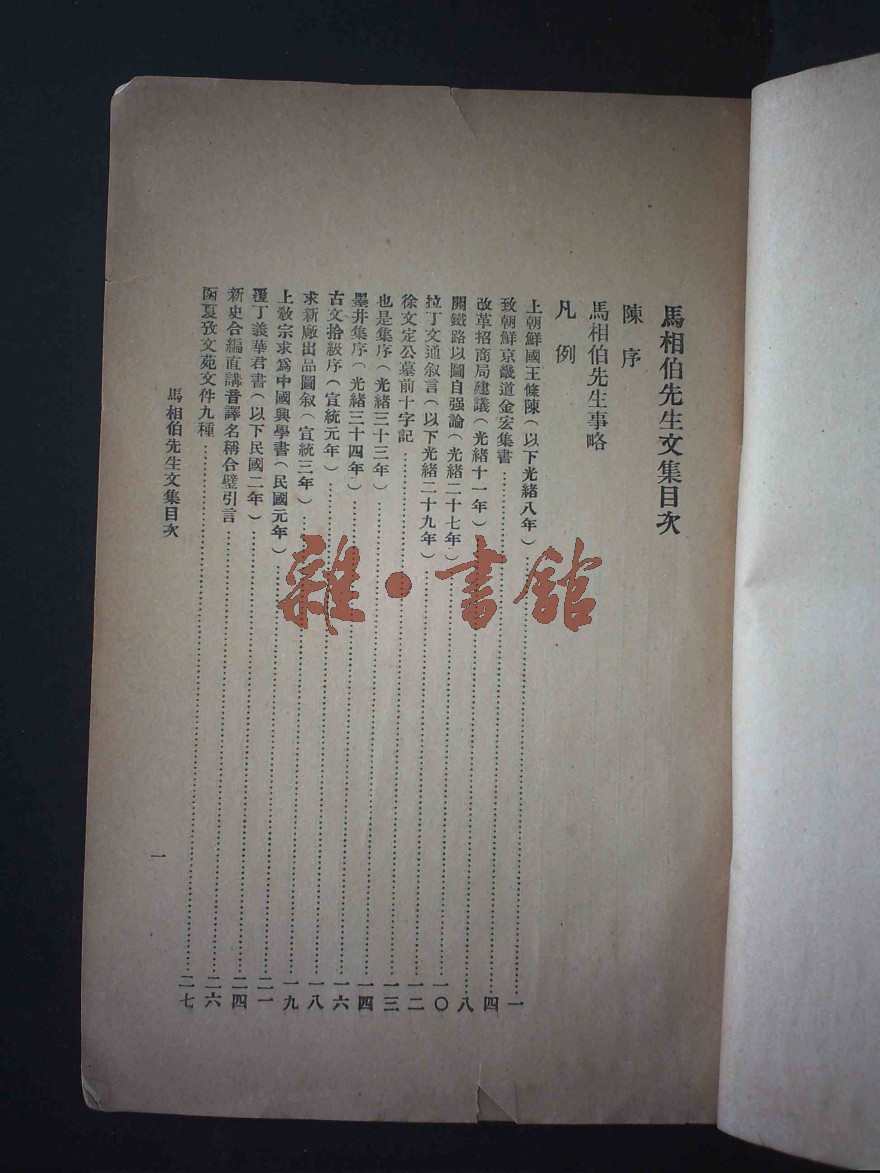 馬相伯先生文集目次
陳序
馬相伯先生事略
凡例
上朝鮮國王條陳(以下光緒八年)……一
致朝鮮京畿道金宏集書……四
改革招商局建議(光緒十一年)……八
開鐵路以圖自强論(光緒二十七年)……一〇
拉丁文通叙言(以下光緒二十九年)……一二
徐文定公墓前十字記……一三
也是集序(光緒三十三年)……一四
墨井集序(光緒三十四年)……一六
古文拾級序(宣統元年)……一八
求新廠出品圖叙(宣統三年)……一九
上敎宗求爲中國興學書(民國元年)……二一
覆丁義華君書(以下民國二年)……二四
新史合編直講音譯名稱合璧引言……二六
函夏攷文苑文件九種……二七
馬相伯先生文集目次
一
雜·書館